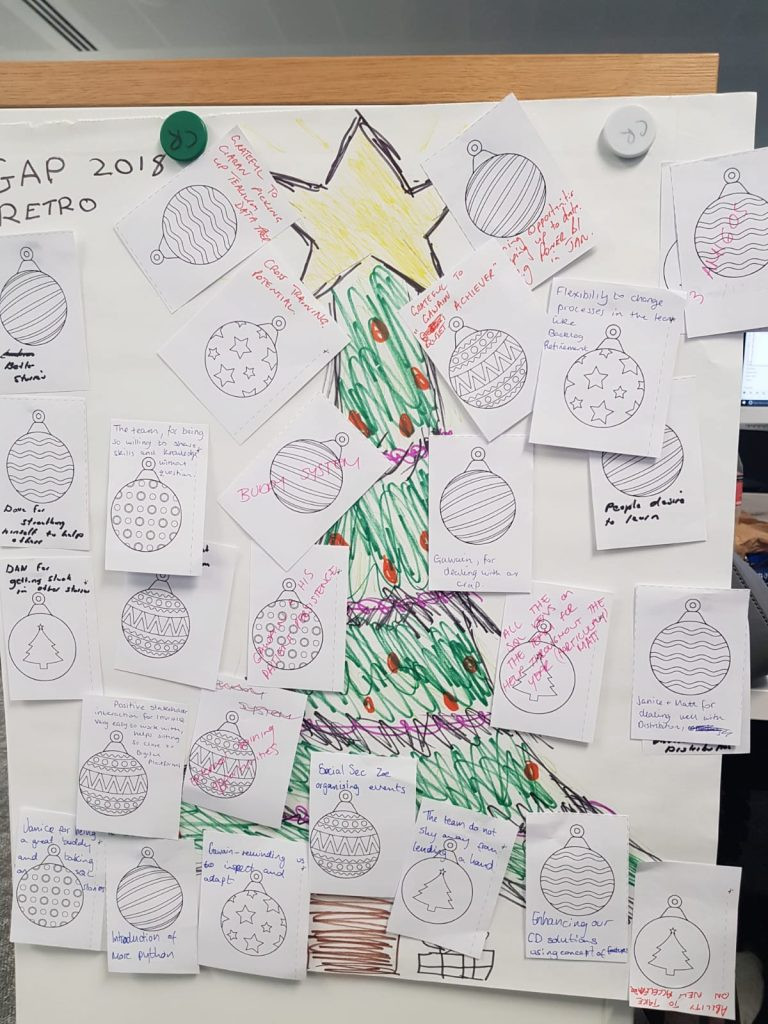 GAP 2018
RETRO
CR
CR
GRATEFUL TO
CIARAN PICKING
UP TEALIUM
DATA
CROSS TRAINING
POTENTIAL
opportunities
up to date.
POWER BI
in JAN.
GRATEFUL TO
GAWAIN
ACHIEVER"
Flexibility to change
processes in the team
like
Backlog
Refinement
Better
stories
The team, for being
so willing to share
skills and knowledge
without
question.
BUDDY SYSTEM
Gawain, for
dealing with our
crap.
People desire
to learn
Dave for
stretching
himself to help
others
DAN for
getting stuck
in other stories
HIS
PERSISTENCE
ALL THE
SQL KEYS ON
THE TEAM FOR
HELP THROUGHOUT THE
YEAR (PARTICULARLY
MATT
Janice + Matt for
dealing well with
Distributor,
Positive stakeholder
interaction for
Very easy to work with,
helps sitting
so close to
Digital
Platforms
SYSTEM
Social Sec Zoe
organising events
The team do not
shy away from
lending a hand
Janice for being
a great buddy
and taking
on SQL
Introduction of
More python
Gawain - reminding us
to inspect and
adapt
Enhancing our
CD solutions
using concept of features
ABILITY TO TAKE
ON NEW